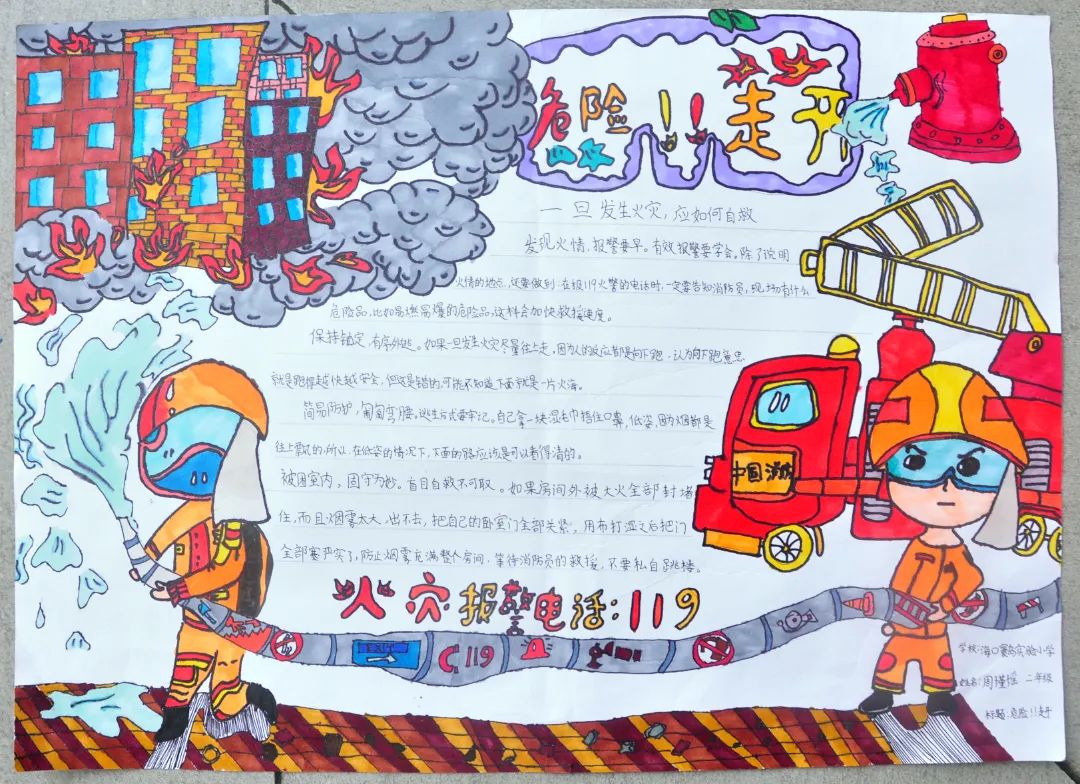 危险!!走开
一旦发生火灾,应如何自救
发现火情,报警要早。有效报警要学会。除了说明
火情的地点,还要做到:在报119火警的电话时,一定要告知消防员,现场有什么
危险品,比如易燃易爆的危险品,这样会加快救援速度。
保持镇定,有序外逃。如果一旦发生火灾尽量往上走,因为人的反应都是向下跑,认为向下跑意思
就是跑得越快越安全,但这是错的,可能不知道下面就是一片火海。
简易防护,匍匐弯腰,逃生方式要牢记。自己拿一块湿毛巾捂住口鼻,低姿,因为烟都是
往上飘的,所以,在低姿的情况下,下面的路应该是可以看得清的。
被困室内,固守为妙。盲目自救不可取。如果房间外被大火全部封堵
住,而且烟雾太大,出不去,把自己的卧室门全部关紧,用布打湿之后把门
全部塞严实了,防止烟雾充满整个房间,等待消防员的救援,不要私自跳楼。
中国消防
火灾报警电话:119
119
学校:海口 实验小学
姓名:周瑾 二年级
标题:危险!!走开